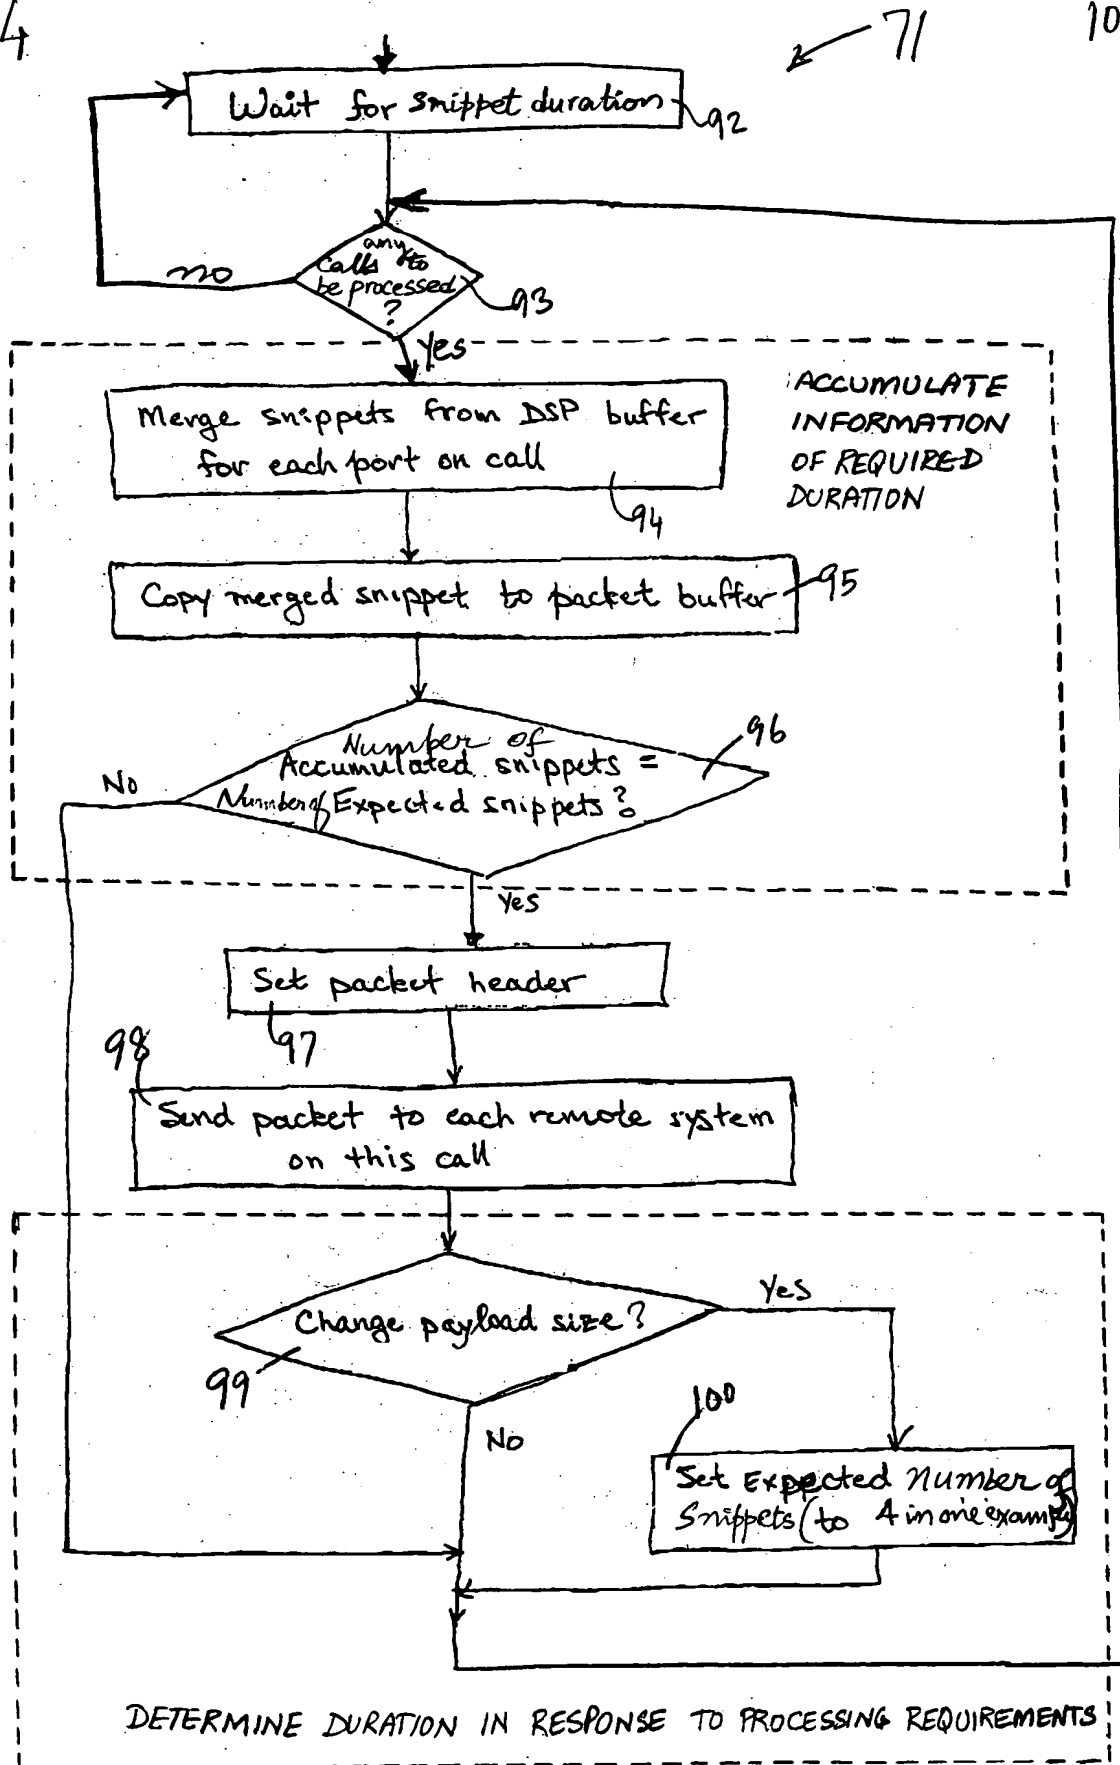 4
71
10
Wait for snippet duration
92
any
calls to
be processed
?
no
93
Yes
ACCUMULATE
INFORMATION
OF REQUIRED
DURATION
Merge snippets from DSP buffer
for each port on call
94
Copy merged snippet to packet buffer
95
Number of
Accumulated snippets =
Number of Expected snippets?
96
No
Yes
Set packet header
97
98
Send packet to each remote system
on this call
Change payload size?
Yes
99
No
100
Set Expected Number of
Snippets (to 4 in one example)
DETERMINE DURATION IN RESPONSE TO PROCESSING REQUIREMENTS